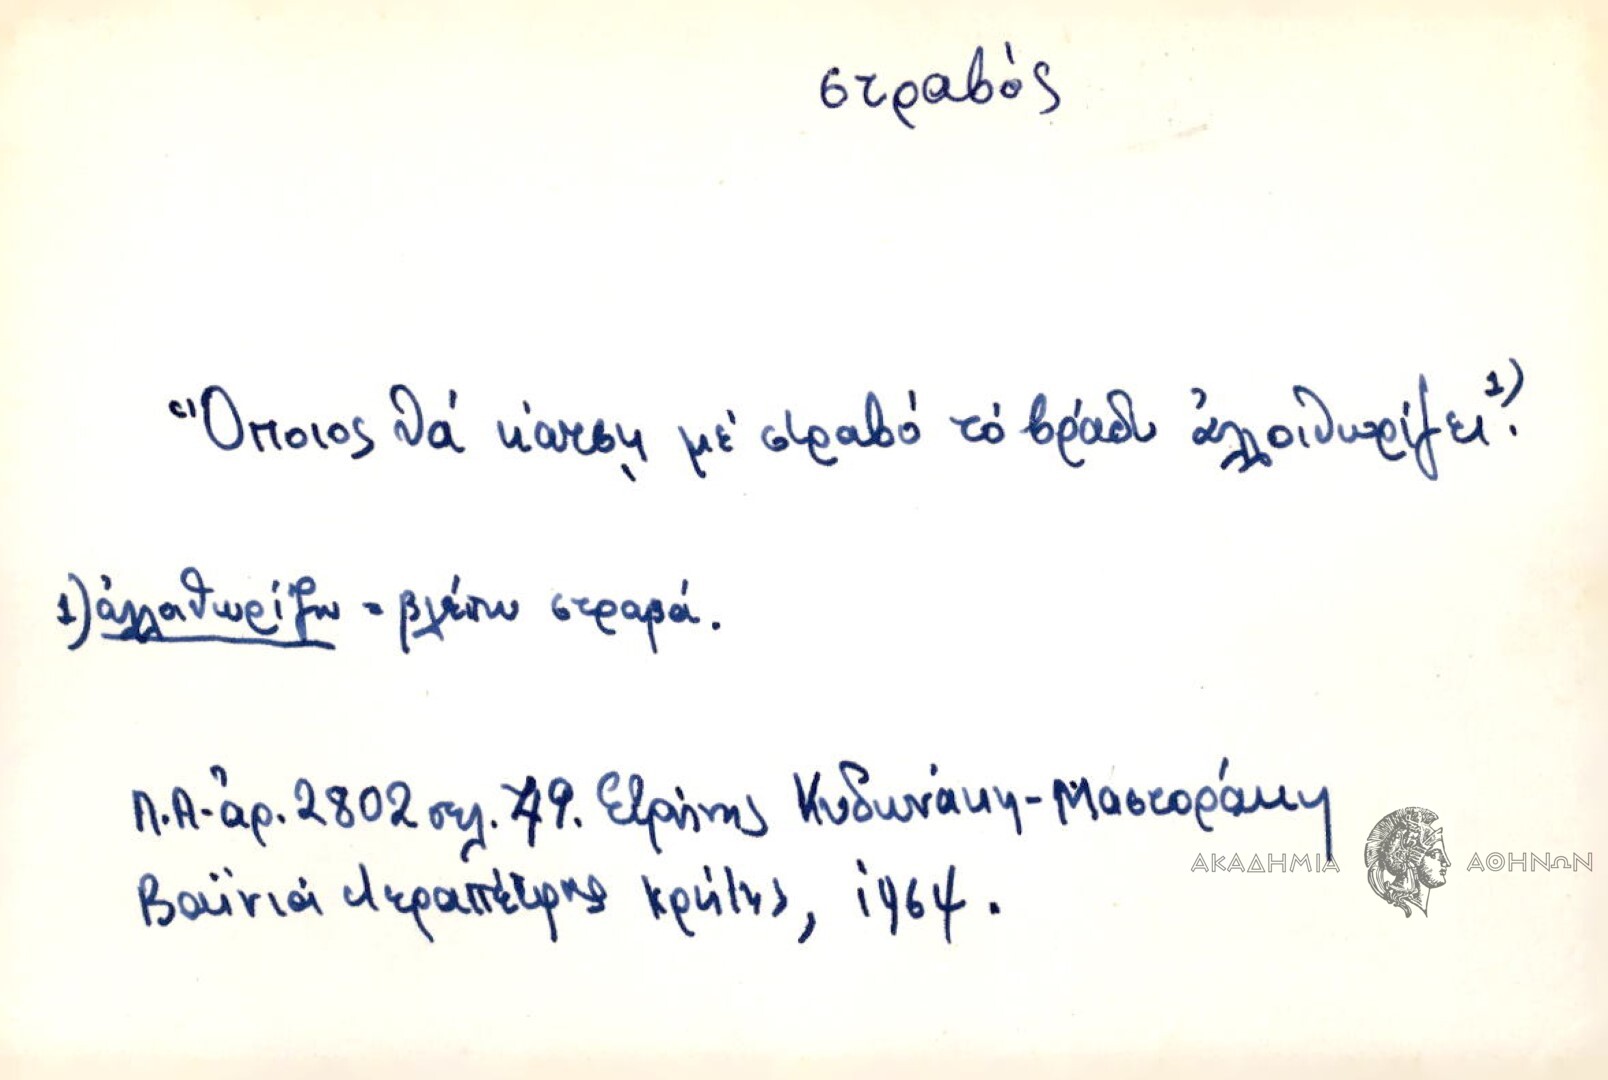 στραβός
"Ὅποιος θά κάτσῃ μέ στραβό τό βράδυ ἀλλοιθωρίζει¹⁾.
1) ἀλλαθωρίζω = βλέπω στραβά.
Λ.Α. ἀρ. 2802 σελ. 79. Εἰρήνης Κυδωνάκη-Μαστοράκη
Βαϊνιά Ἱεραπέτρης Κρήτης, 1964.
ΑΚΑΔΗΜΙΑ ΑΘΗΝΩΝ